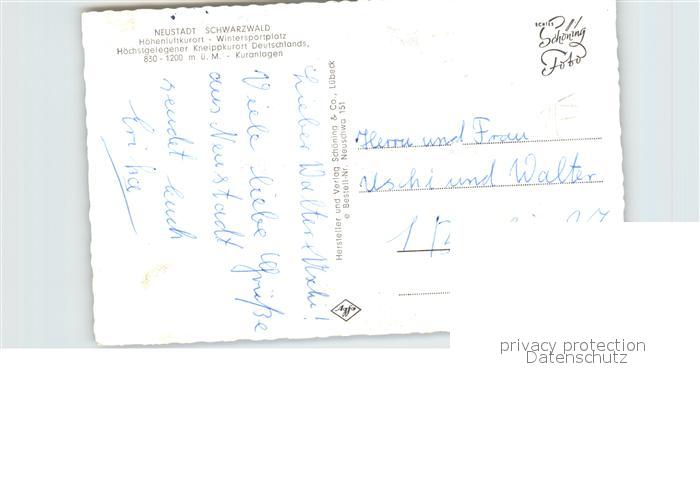 NEUSTADT SCHWARZWALD
Höhenluftkurort - Wintersportplatz
Höchstgelegener Kneippkurort Deutschlands,
830 - 1200 m ü. M. - Kuranlagen
Lieber Walter + Uschi!
Viele liebe Grüße
aus Neustadt
sendet Euch
Erika
Hersteller und Verlag Schöning & Co., Lübeck
Bestell-Nr. Neuschwa 151
agfa
ECHTES
Schöning
Foto
Herrn und Frau
Uschi und Walter
1
privacy protection
Datenschutz